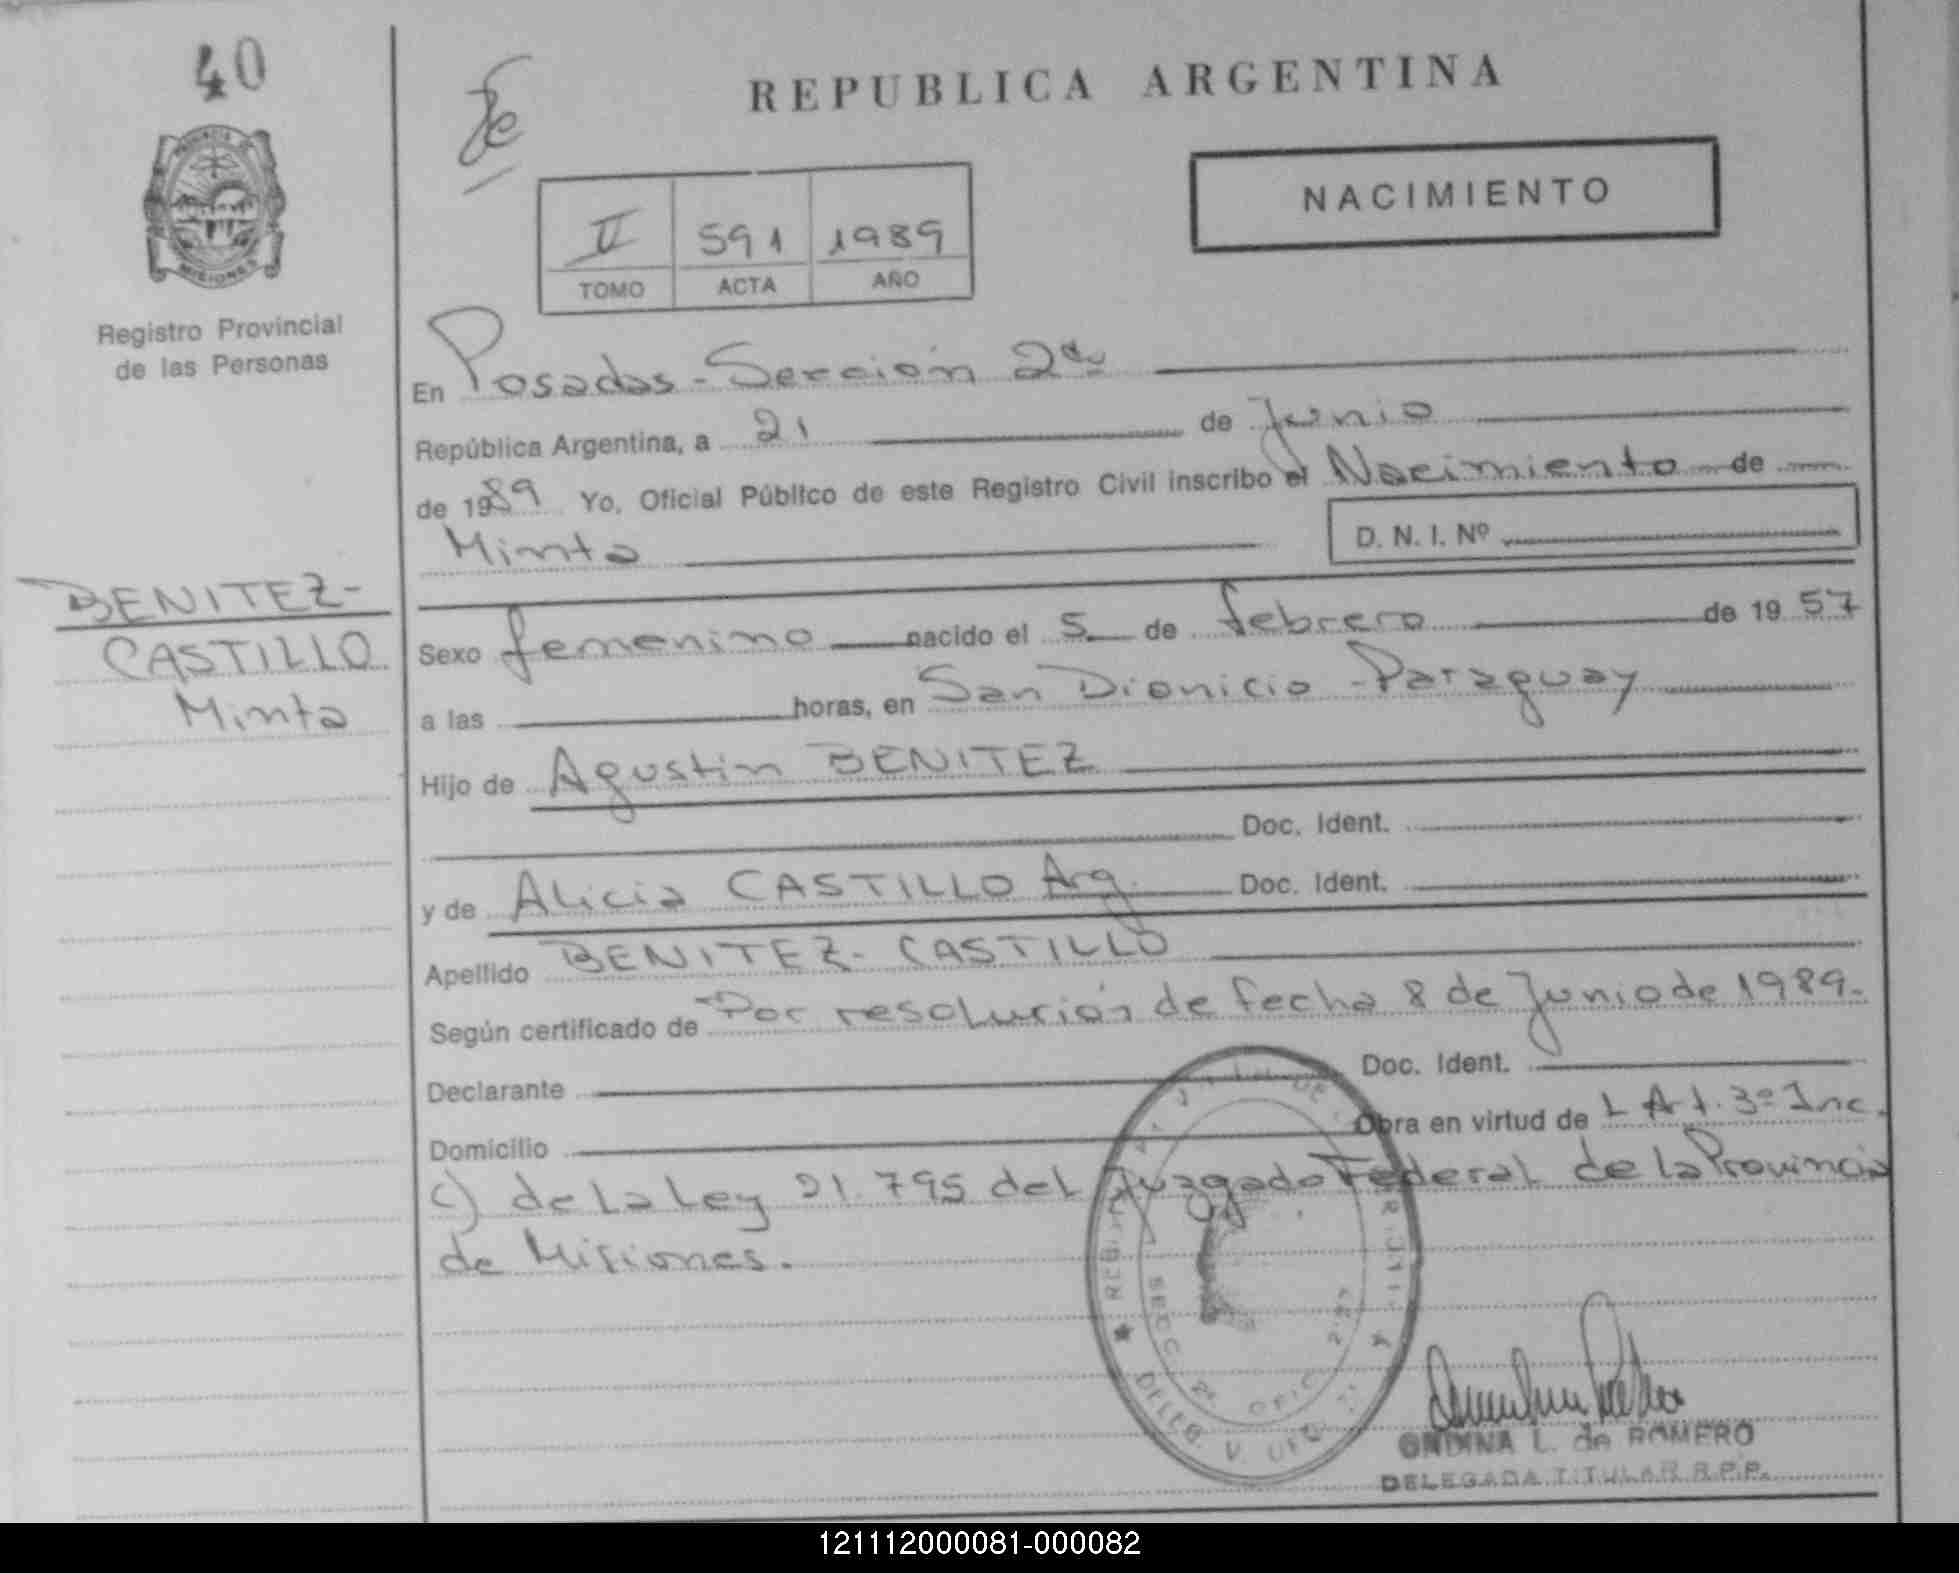 40
REPUBLICA ARGENTINA
PROVINCIA DE
MISIONES
Registro Provincial
de las Personas
NACIMIENTO
II 591 1989
TOMO ACTA AÑO
En Posadas - Sección 2da
República Argentina, a 21 de Junio
de 1989 Yo, Oficial Público de este Registro Civil inscribo el Nacimiento de
Minta
D. N. I. Nº
BENITEZ-
CASTILLO
Minta
Sexo femenino nacido el 5 de febrero de 1957
a las horas, en San Dionicio - Paraguay
Hijo de Agustin BENITEZ
Doc. Ident.
y de Alicia CASTILLO Arg. Doc. Ident.
Apellido BENITEZ- CASTILLO
Según certificado de Por resolución de fecha 8 de Junio de 1989.
Declarante Doc. Ident.
Domicilio Obra en virtud de L Art. 3º Inc.
c) de la Ley 21.795 del Juzgado Federal de la Provincia
de Misiones.
SECC 2a OFIC
ONDINA L. de ROMERO
DELEGADA TITULAR R.P.P.
121112000081-000082